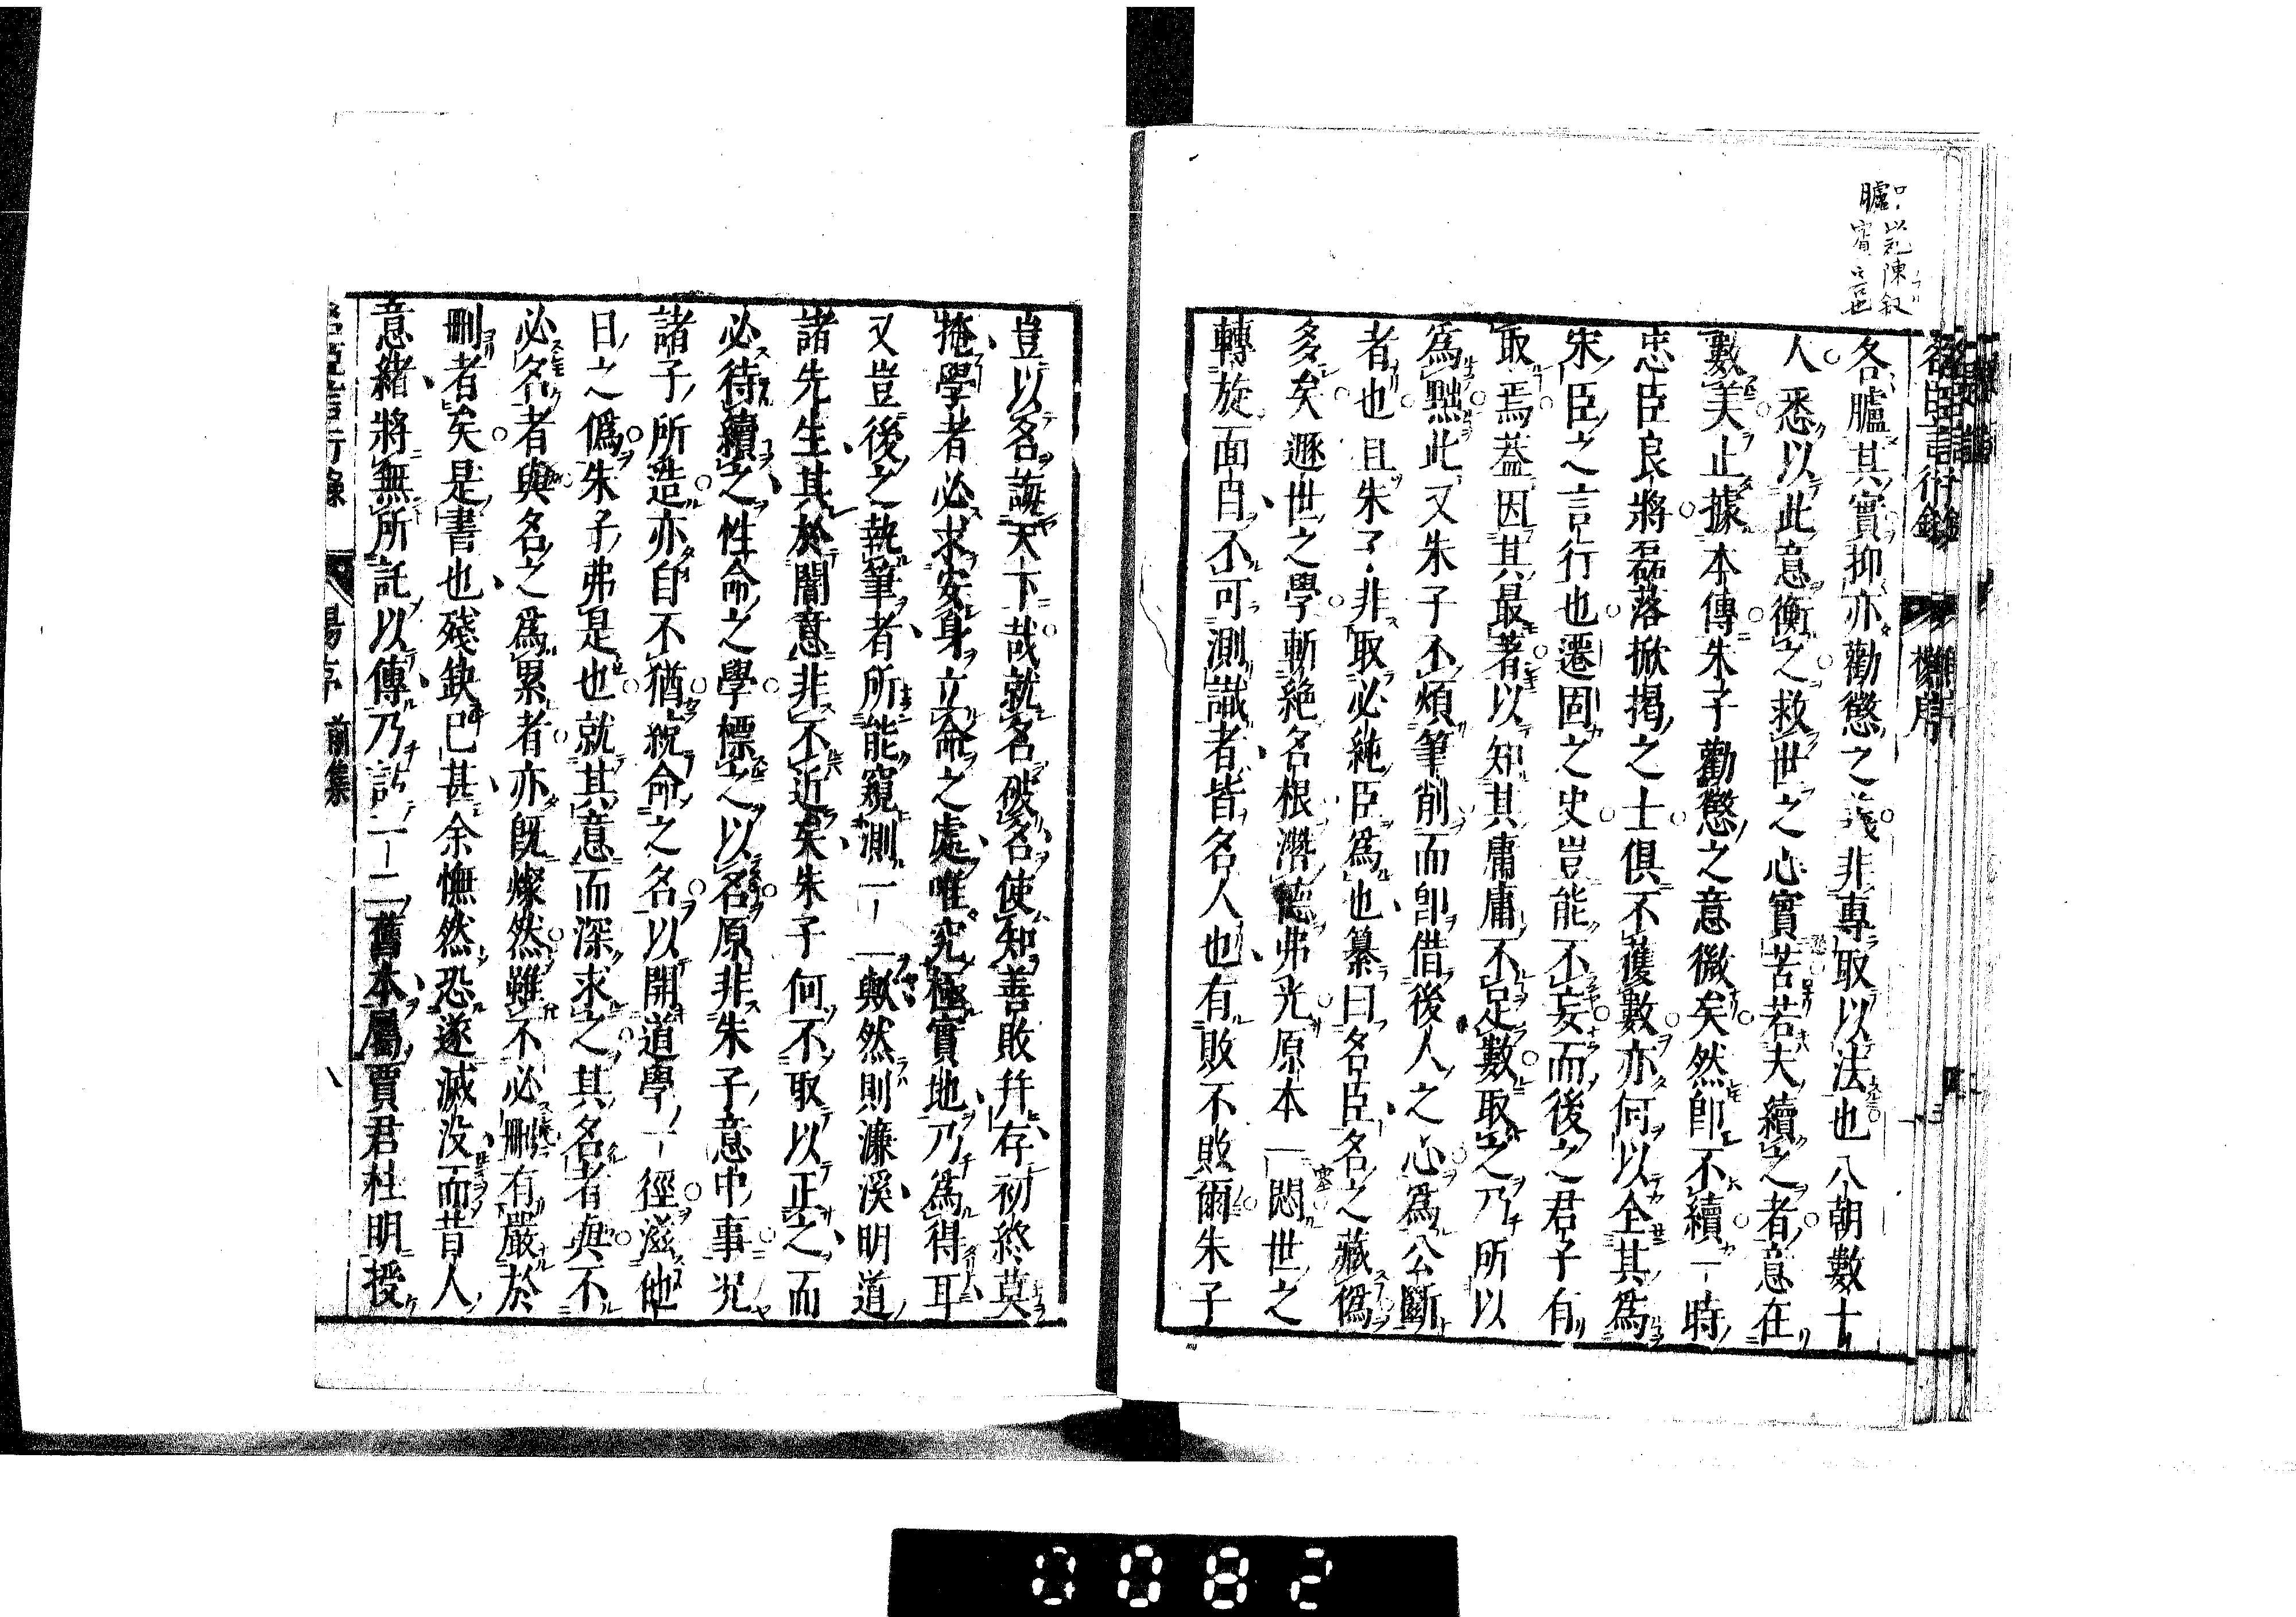 名臣言行錄
各臚其實抑亦勸懲之義非專取以法也八朝數十
人悉以此意衡之救世之心實苦若夫續之者意在
數美止據本傳朱子勸懲之意微矣然卽不續一時
忠臣良將磊落掀揭之士俱不獲數亦何以全其爲
宋臣之言行也遷固之史豈能不妄而後之君子有
取焉蓋因其最著以知其庸庸不足數取之乃所以
爲黜此又朱子不煩筆削而卽借後人之心爲公斷
者也且朱子非取必純臣爲也纂曰名臣名之藏僞
多矣遯世之學斬絶名根潛德弗光原本一悶世之
轉旋面目不可測識者皆名人也有敗不敗爾朱子
豈以名誨天下哉就名破名使知善敗幷存初終莫
掩學者必求安身立命之處唯究極實地乃爲得耳
又豈後之執筆者所能窺測一一歟然則濂溪明道
諸先生其於闇意非不近矣朱子何不取以正之而
必待續之性命之學標之以名原非朱子意中事况
諸子所造亦自不猶統命之名以開道學一徑滋他
日之僞朱子弗是也就其意而深求之其名者與不
必名者與名之爲累者亦旣燦然雖不必刪有嚴於
刪者矣是書也殘缺已甚余憮然恐遂滅没而昔人
意緒將無所託以傳乃訪一二舊本屬賈君杜明授
前集
0082